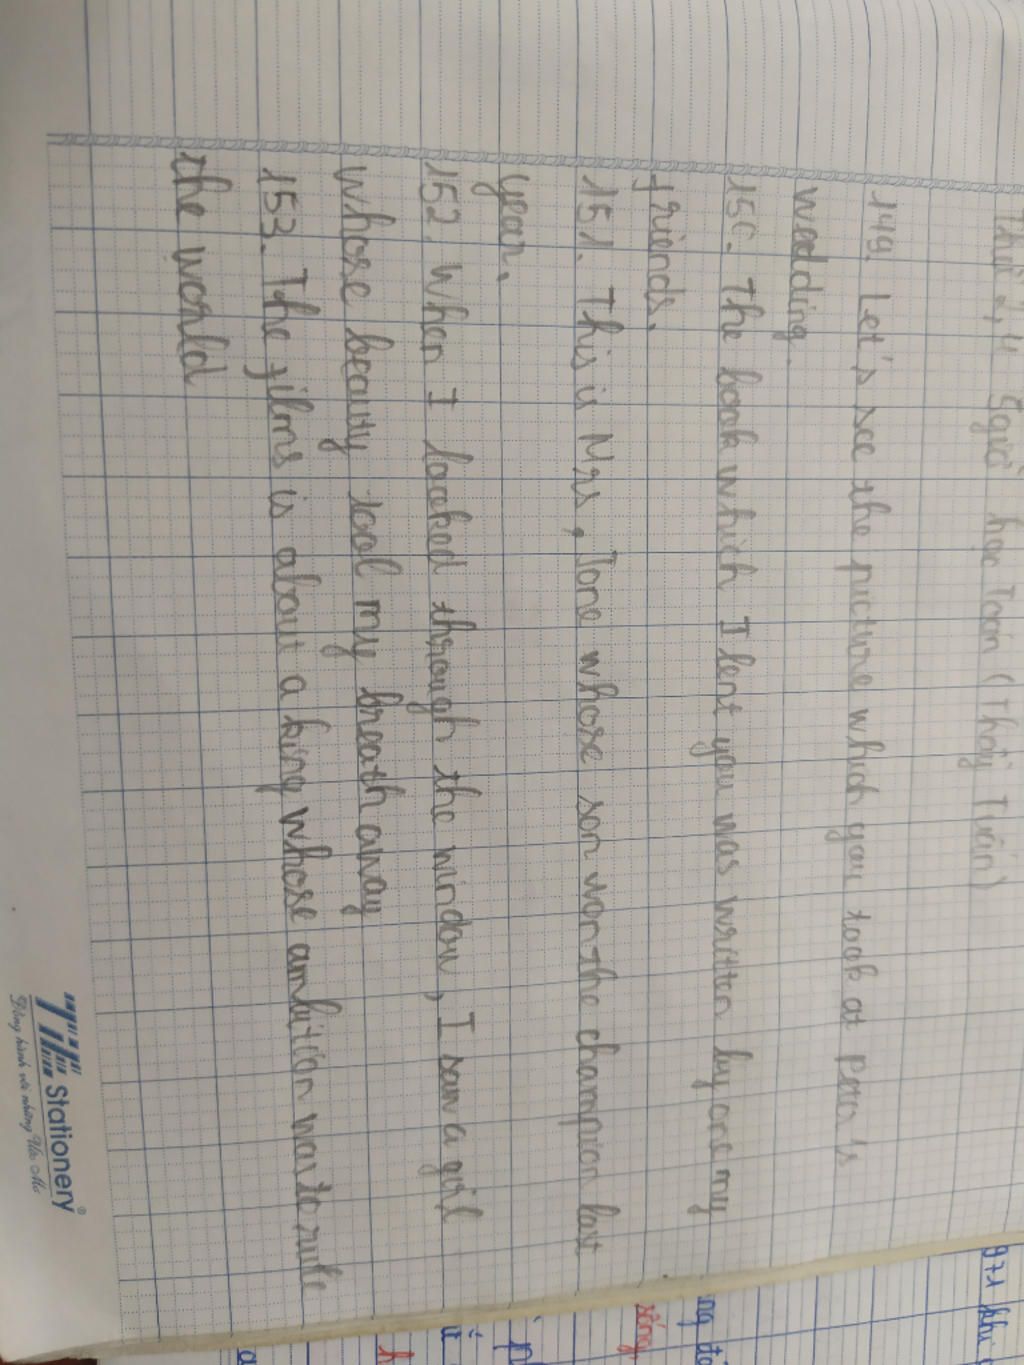 học Toán (Thầy Tuấn)
149. Let's see the picture which you took at Peter's
wedding.
150. The book which I lent you was written by one my
friends.
151. This is Mrs, Jone whose son won the champion last
year.
152. When I looked through the window, I saw a girl
whose beauty tool my breath away
153. The films is about a king whose ambition was to rule
the world
TiTi Stationery®
Đồng hành với những Ước Mơ
sống